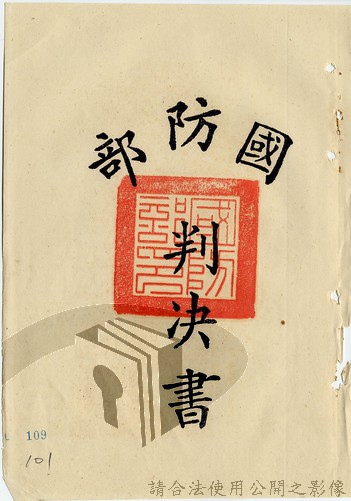 國防部
判決書
國防部印
109
101
請合法使用公開之影像